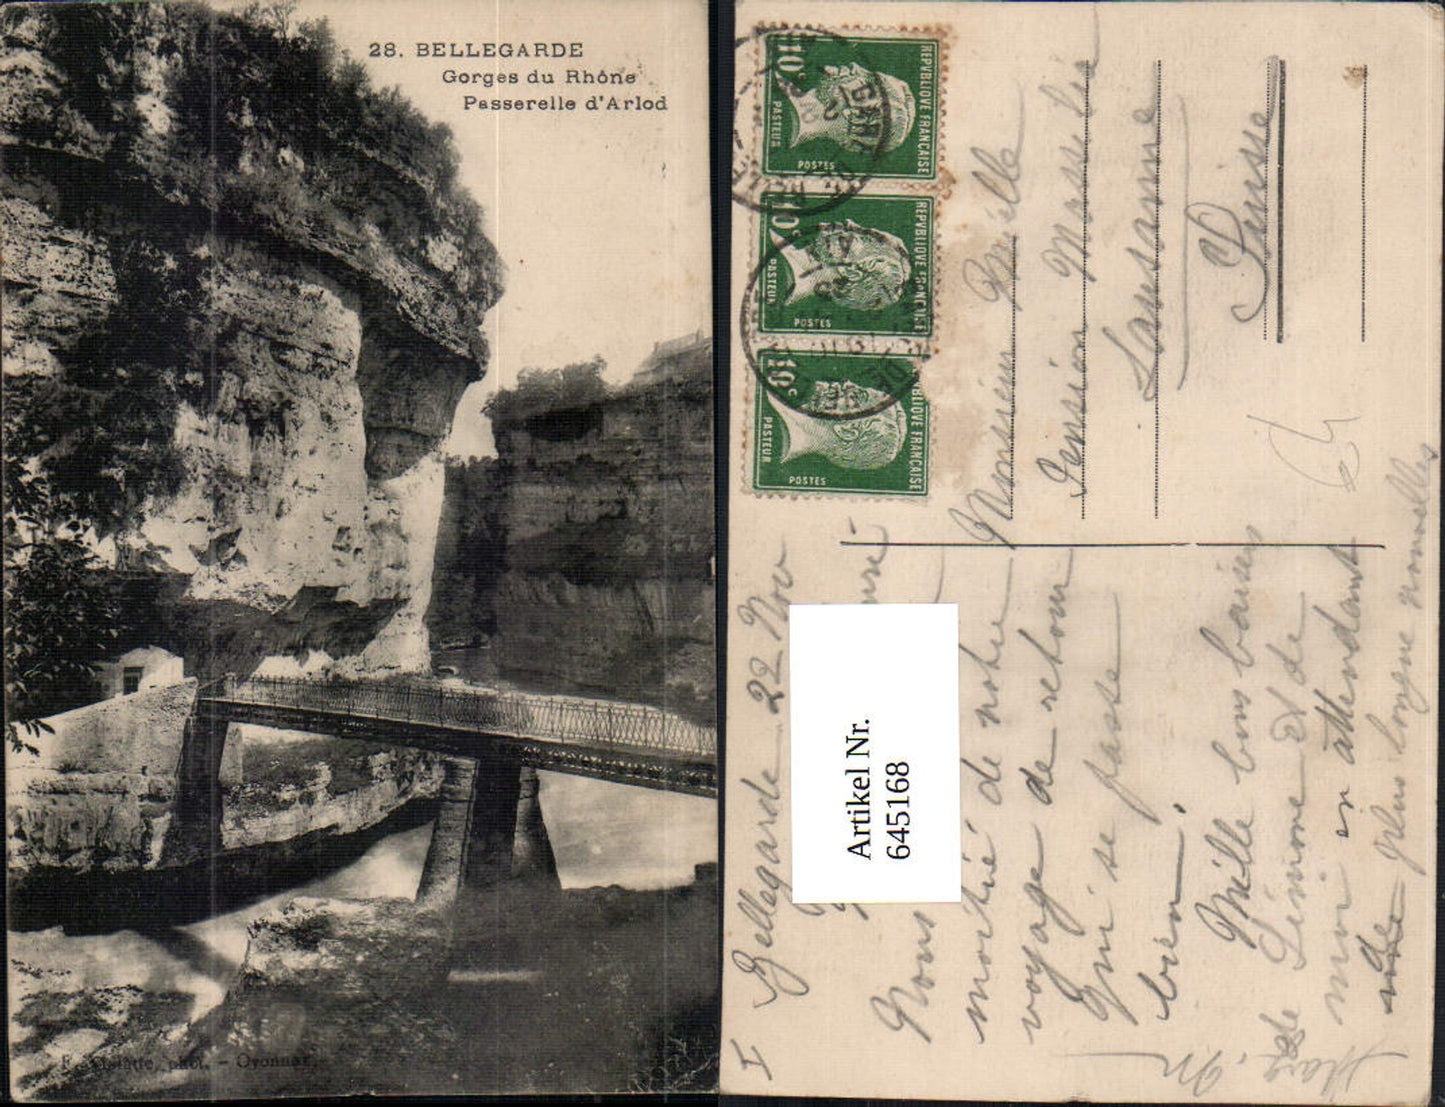 28. BELLEGARDE
Gorges du Rhône
Passerelle d'Arlod
phot. - Oyonnax
REPVBLIQVE FRANÇAISE
10c
PASTEUR
POSTES
REPVBLIQVE FRANÇAISE
10c
PASTEUR
POSTES
REPVBLIQVE FRANÇAISE
10c
PASTEUR
POSTES
Monsieur
Pension
Lausanne
Suisse
Bellegarde 22 Nov
Artikel Nr.
645168
Nous
moitié de notre
voyage de retour
qui se passe
bien.
Mille bons baisers
de Simone et de
moi en attendant
de plus longue nouvelles